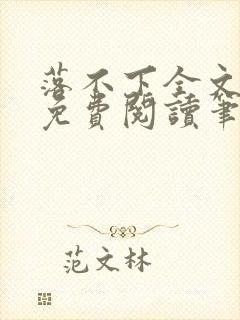 落不下全文
免費閱讀筆
范文林